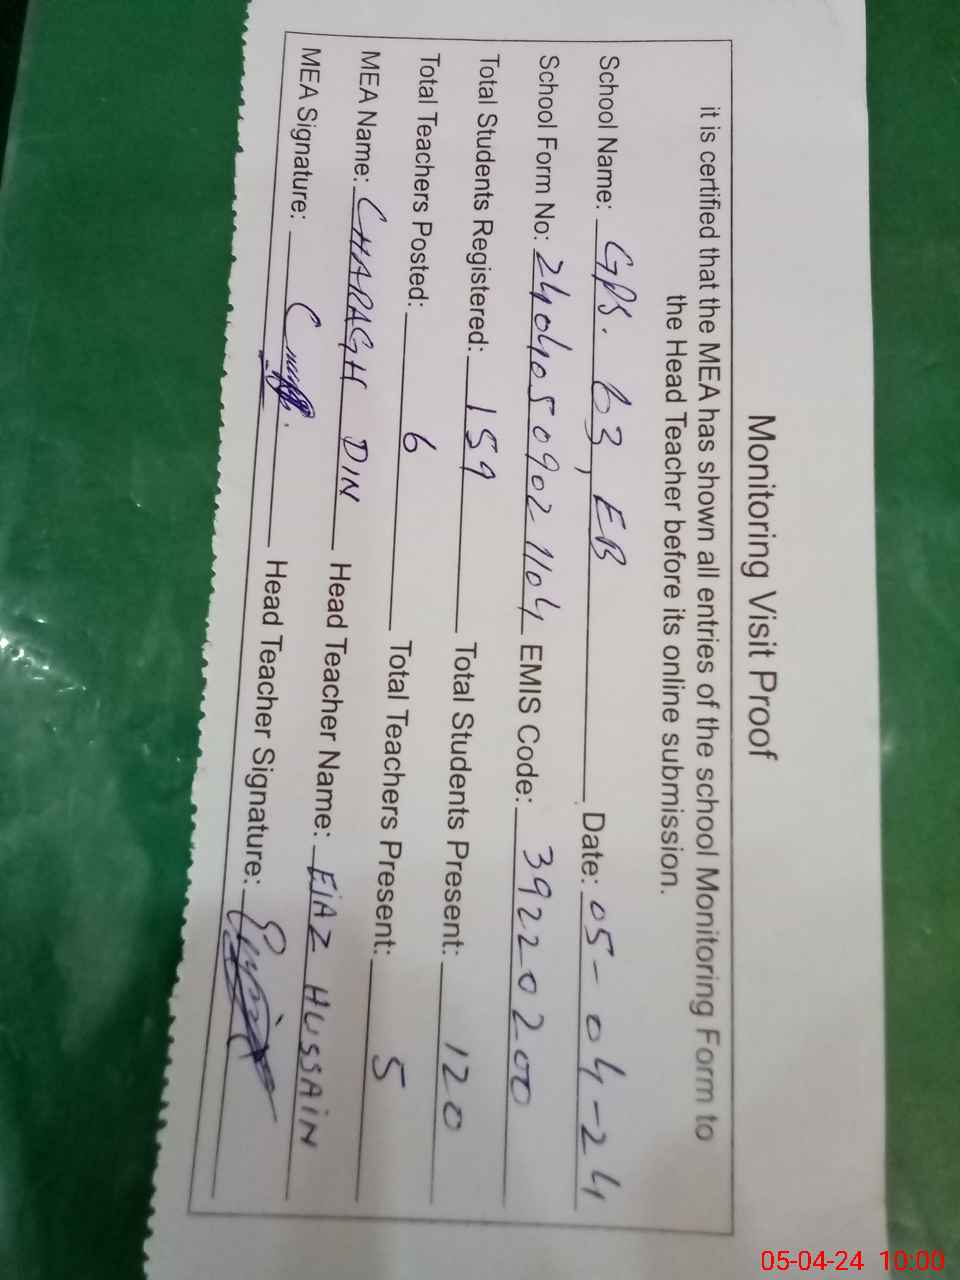 Monitoring Visit Proof
it is certified that the MEA has shown all entries of the school Monitoring Form to
the Head Teacher before its online submission.
School Name: GPS. 63, EB Date: 05-04-24
School Form No: 2404050902 1104 EMIS Code: 39220200
Total Students Registered: 159 Total Students Present: 120
Total Teachers Posted: 6 Total Teachers Present: 5
MEA Name: CHARAGH DIN Head Teacher Name: EjAZ HUSSAiN
MEA Signature: Head Teacher Signature:
05-04-24 10:00